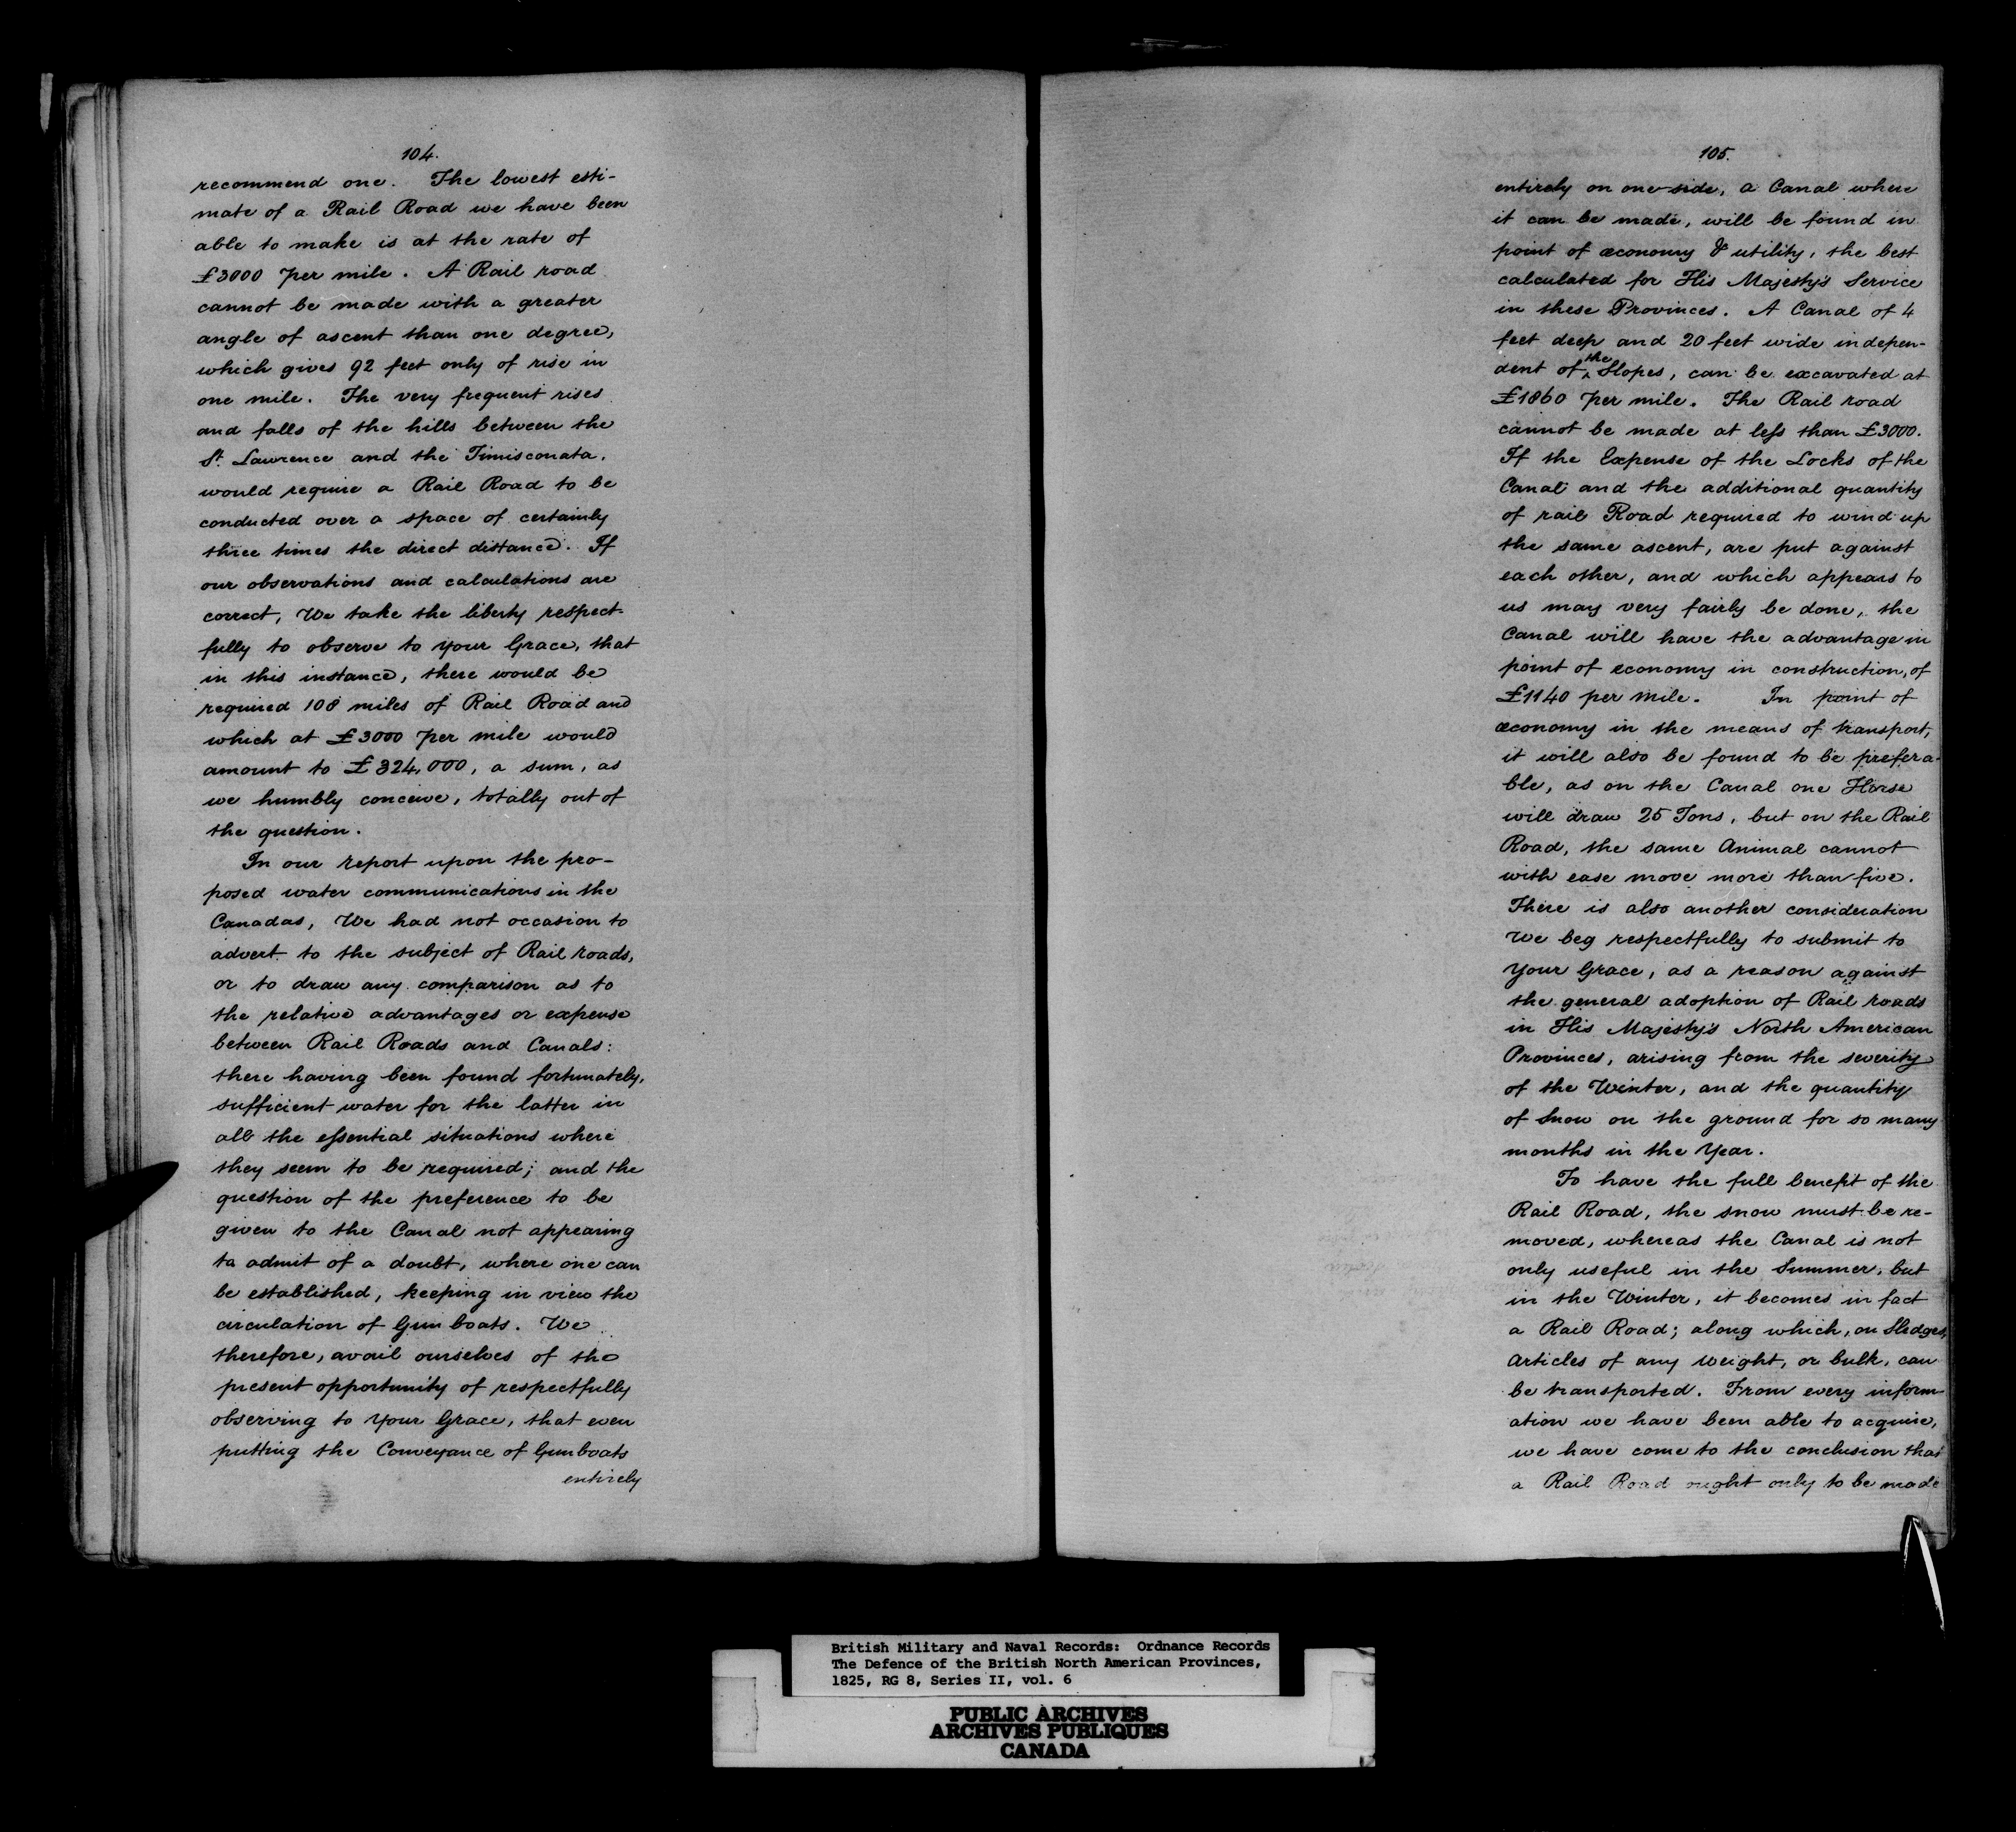 104.
recommend one. The lowest esti-
mate of a Rail Road we have been
able to make is at the rate of
£3000 per mile. A Rail road
cannot be made with a greater
angle of ascent than one degree,
which gives 92 feet only of rise in
one mile. The very frequent rises
and falls of the hills between the
St. Lawrence and the Timisconata.
would require a Rail Road to be
conducted over a space of certainly
three times the direct distance. If
our observations and calculations are
correct, We take the liberty respect-
fully to observe to your Grace, that
in this instance, there would be
required 108 miles of Rail Road and
which at £3000 per mile would
amount to £324,000, a sum, as
we humbly conceive, totally out of
the question.
In our report upon the pro-
posed water communications in the
Canadas, We had not occasion to
advert to the subject of Rail roads,
or to draw any comparison as to
the relative advantages or expense
between Rail Roads and Canals:
there having been found fortunately,
sufficient water for the latter in
all the essential situations where
they seem to be required; and the
question of the preference to be
given to the Canal not appearing
to admit of a doubt, where one can
be established, keeping in view the
circulation of Gun boats. We
therefore, avail ourselves of the
present opportunity of respectfully
observing to Your Grace, that even
putting the Conveyance of Gunboats
entirely
105.
entirely on one side, a Canal where
it can be made, will be found in
point of œconomy & utility, the best
calculated for His Majesty's Service
in these Provinces. A Canal of 4
feet deep and 20 feet wide indepen-
dent of the Slopes, can be excavated at
£1860 per mile. The Rail road
cannot be made at less than £3000.
If the Expense of the Locks of the
Canal and the additional quantity
of rail Road required to wind up
the same ascent, are put against
each other, and which appears to
us may very fairly be done, the
Canal will have the advantage in
point of economy in construction, of
£1140 per mile. In point of
œconomy in the means of transport,
it will also be found to be prefera-
ble, as on the Canal one Horse
will draw 25 Tons, but on the Rail
Road, the same Animal cannot
with ease move more than five.
There is also another consideration
We beg respectfully to submit to
Your Grace, as a reason against
the general adoption of Rail roads
in His Majesty's North American
Provinces, arising from the severity
of the Winter, and the quantity
of Snow on the ground for so many
months in the Year.
To have the full benefit of the
Rail Road, the snow must be re-
moved, whereas the Canal is not
only useful in the Summer, but
in the Winter, it becomes in fact
a Rail Road; along which, on Sledges,
Articles of any weight, or bulk, can
be transported. From every inform-
ation we have been able to acquire,
we have come to the conclusion that
a Rail Road ought only to be made
British Military and Naval Records: Ordnance Records
The Defence of the British North American Provinces,
1825, RG 8, Series II, vol. 6
PUBLIC ARCHIVES
ARCHIVES PUBLIQUES
CANADA